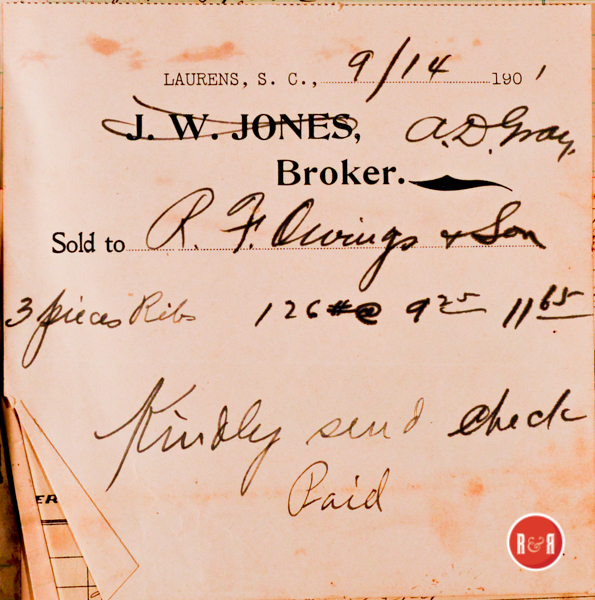 LAURENS, S. C., 9/14 1901
J. W. JONES, A. D. Gray,
Broker.
Sold to R. F. Owings & Son
3 pieces Ribs 126 #@ 9 25 11 65
Kindly send check
Paid
ER
R&R